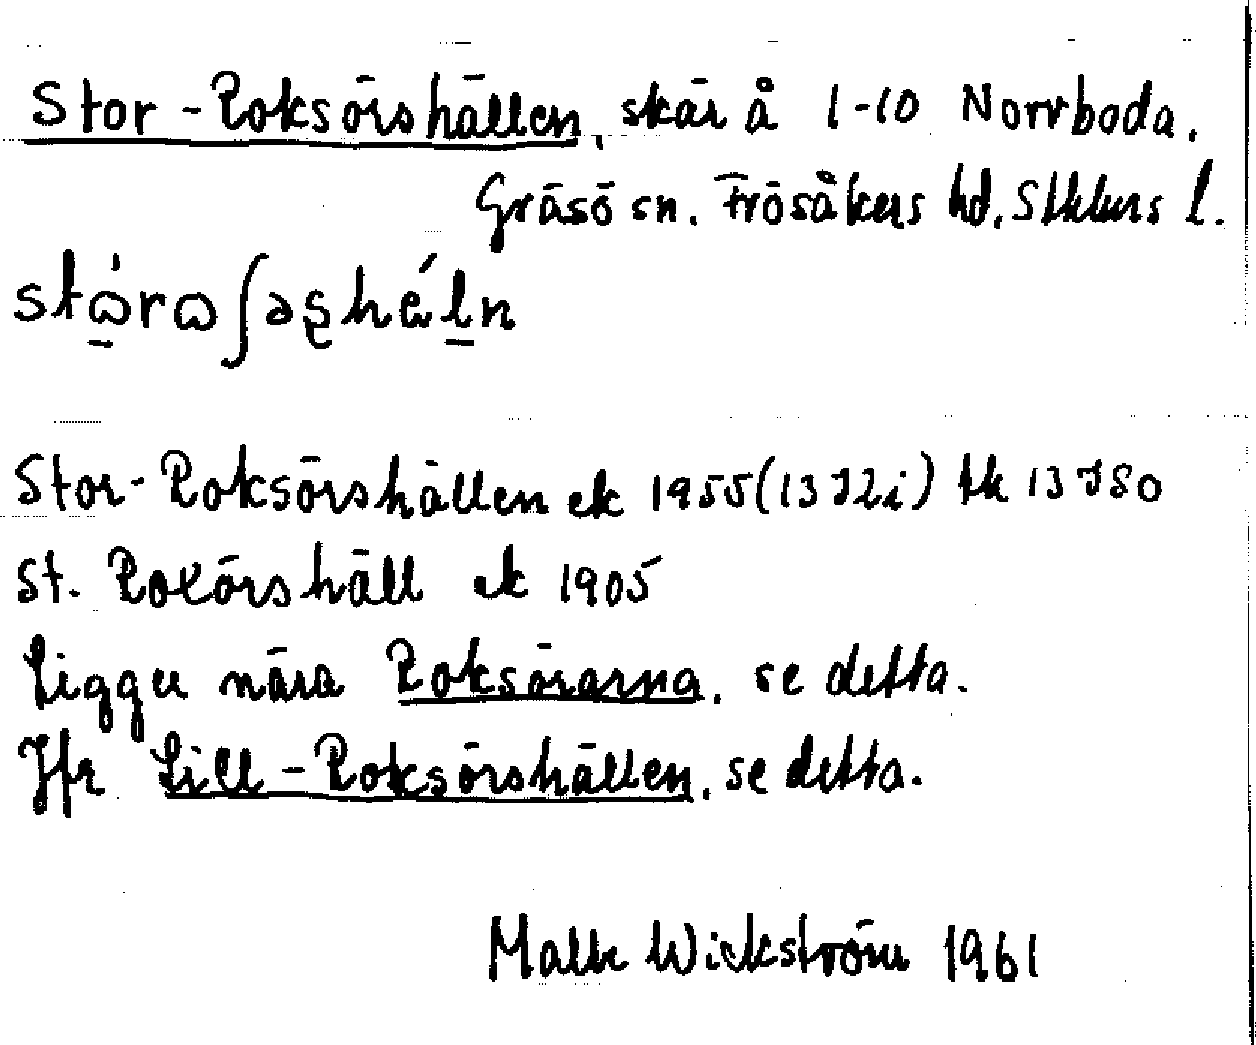 Stor-Roksörshällen, skär å 1-10 Norrboda.
Gräsö sn. Frösåkers hd. Sthlms l.
Stor-Roksörshällen ek 1955 (13 I2i) tk 13 I SO
St. Roxörshäll ek 1905
Ligger nära Roksörarna, se detta.
Jfr Lill-Roksörshällen, se detta.
Wickström 1961